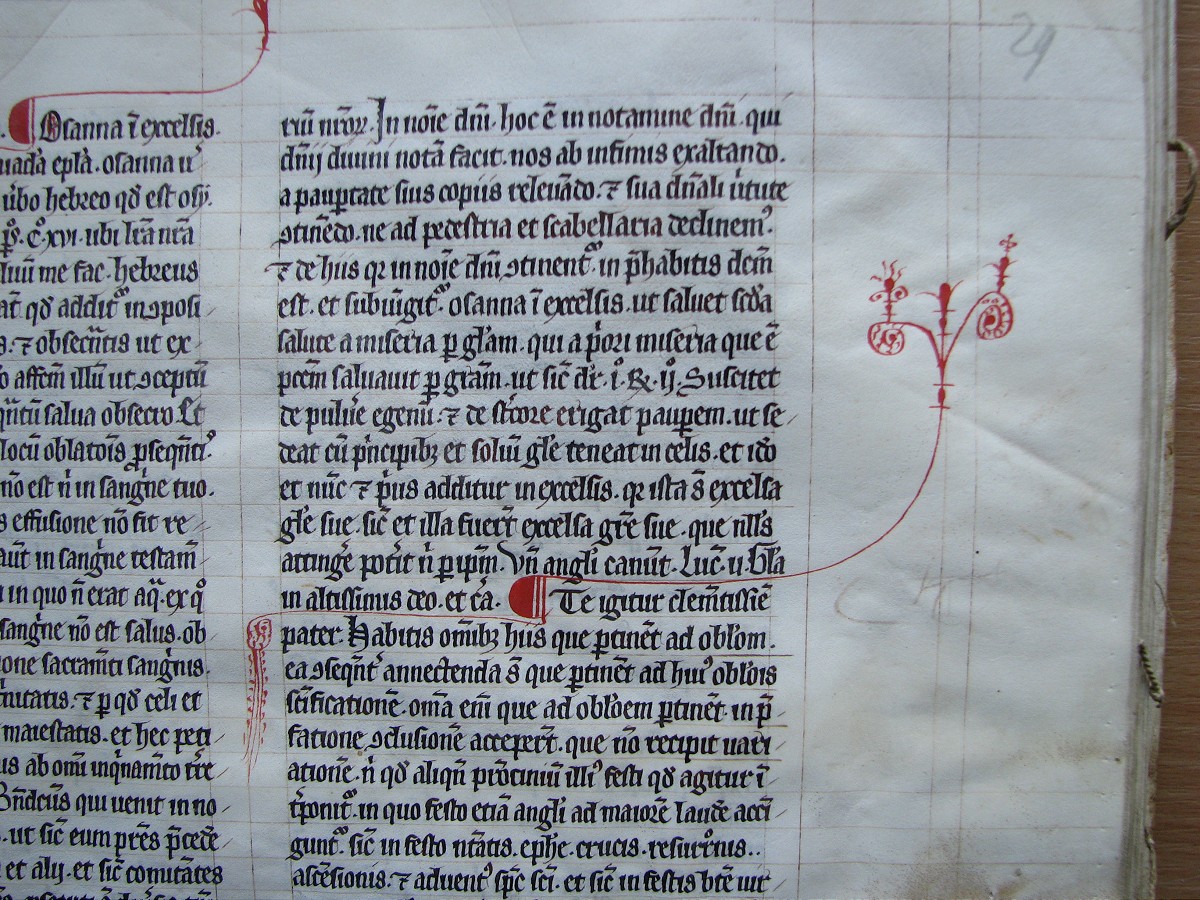 29
Osanna ī excelsis.
osanna u᷒
u᷒bo hebreo qđ est osy.
c̊. xvi. ubi lr̄a nr̄a
me fac. hebreus
qđ addit᷒ in ɔposi
⁊ obsecn̄tis ut ex
affem̄ illū ut ɔceptū
salua obsecro. Et
locū oblatōis ꝓseqn̄t᷒.
nō est n̄ in sangne tuo.
effusione nō fit re
in sangne testam̄
in quo n̄ erat aq̄. ex qͦ
sangne nō est salus. ob
sacram̄ti sangnis.
⁊ ꝑ qđ celi et
maiestatis. et hec peti
ab om̄i inqnam̄to
qui uenit in no
ut sic̄ eum pr̄es p̄cede
et alij. et sic̄ comitātes
riū nr̄oꝝ. In noīe dn̄i. hoc ē in notamine dn̄i. qui
dn̄ij diuini notā facit. nos ab infimis exaltando.
a pauꝑtate suis copiis releuādo. ⁊ sua dn̄ali u᷒tute
ɔtinēdo. ne ad pedestria et scabellaria declinem᷒.
⁊ de hiis qꝛ in noīe dn̄i ɔtinent᷒. in p̄habitis dc̄m
est. et subiūgit᷒. osanna ī excelsis. ut saluet sc̄da
salute a miseria ꝑ gl̄am. qui a p̄ori miseria que ē
pcc̄m saluauit ꝑ gr̄am. ut sic̄ dr̄. i̊. ℞. ij̊. Suscitet
de pulu᷒e egenū. ⁊ de st᷒core erigat pauꝑem. ut se
deat cū p̄ncipibꝫ et soliū gl̄e teneat in celis. et iđo
et nūc ⁊ p̄us additur in excelsis. qꝛ ista s̄ excelsa
gl̄e sue. sic̄ et illa fuer̄t excelsa gr̄e sue. que nll̄s
attinge᷒ pot᷒it n̄ ꝑ ip̄m. Vn̄ angl̄i canūt. Luc̄. ii. Gl̄a
in altissimis deo. et c̄a. Te igitur clem̄tissīe
pater. Habitis om̄ibꝫ hiis que ꝑtinēt ad obl̄om.
ea ɔseqn̄t᷒ annectenda s̄ que ꝑtinēt ad hui᷒ obl̄ois
sc̄ificationē. om̄a em̄ que ad obl̄oem ꝑtinēt. in p̄
fatione ɔclusionē acceper̄t. que nō recipit uari
ationē. n̄ qđ aliqn̄ illi᷒ festi qđ agitur ī
t᷒ponit᷒. in quo festo etiā angl̄i ad maiorē laudē acci
gunt᷒. sic̄ in festo nr̄atis. eph̄e. crucis. resurr̄ōnis..
ascēsionis. ⁊ aduent᷒ sp̄c sc̄i. et sic̄ in festis bt̄e uir